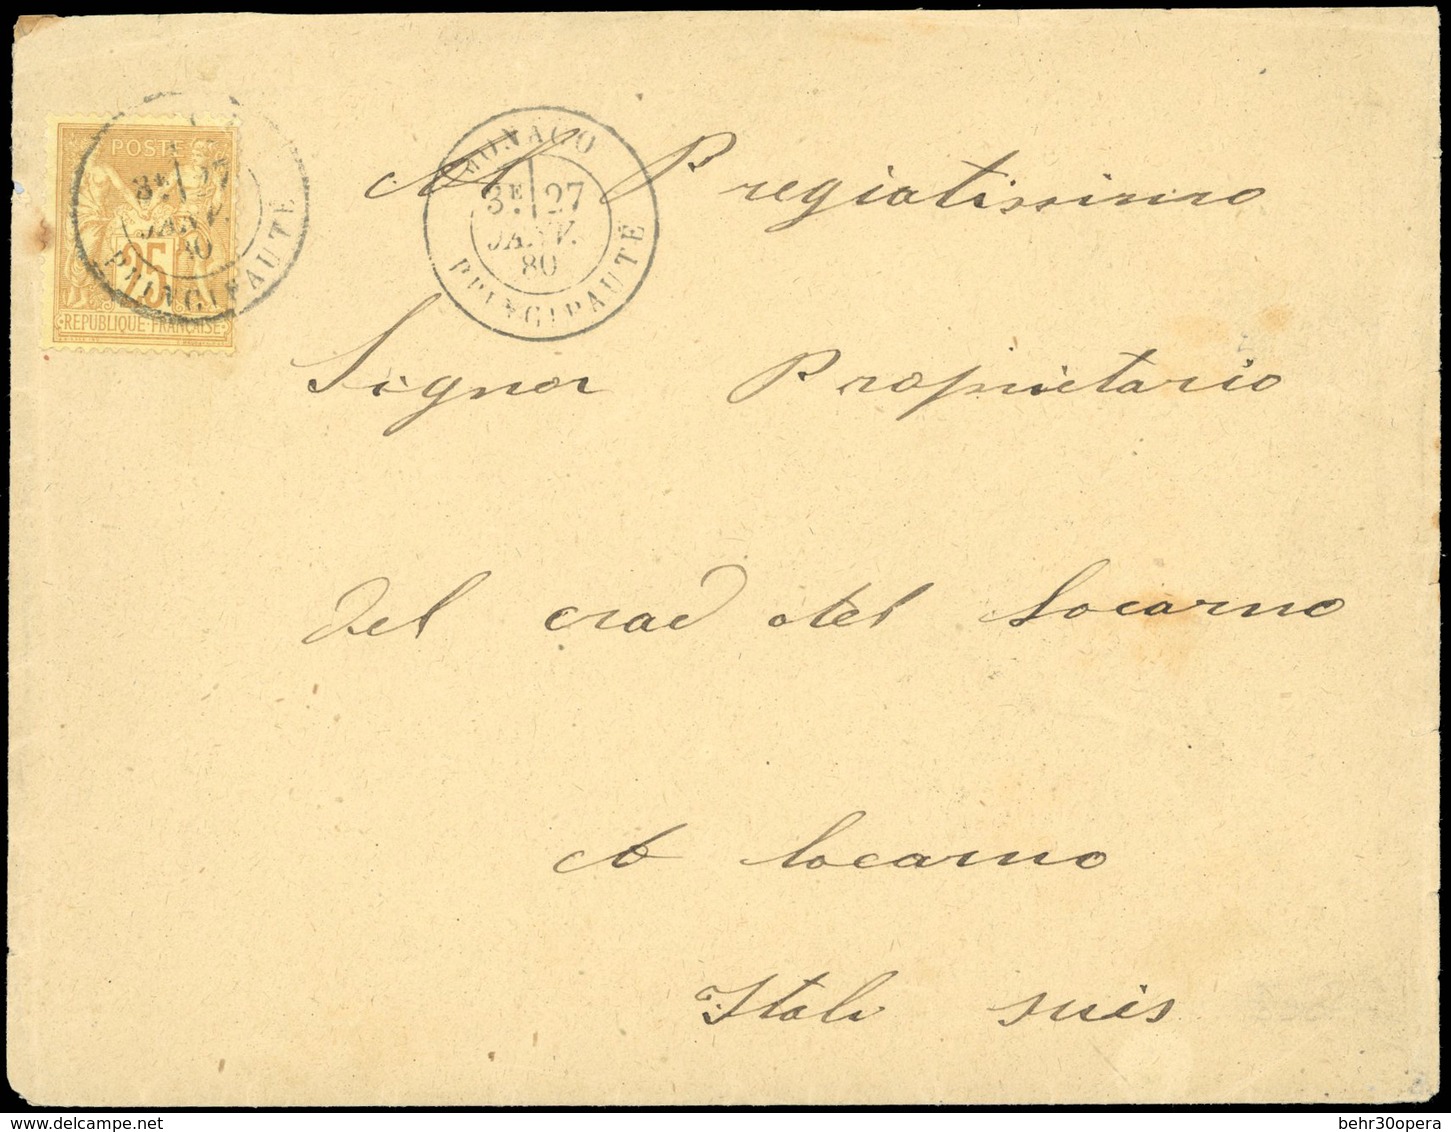 POSTE
25
REPUBLIQUE FRANÇAISE
3E 27
JANV.
80
PRINCIPAUTÉ
MONACO
3E 27
JANV.
80
PRINCIPAUTÉ
Al Pregiatissimo
Signor Proprietario
Del crad otel Locarno
A Locarno
Itali suis
behr30opera